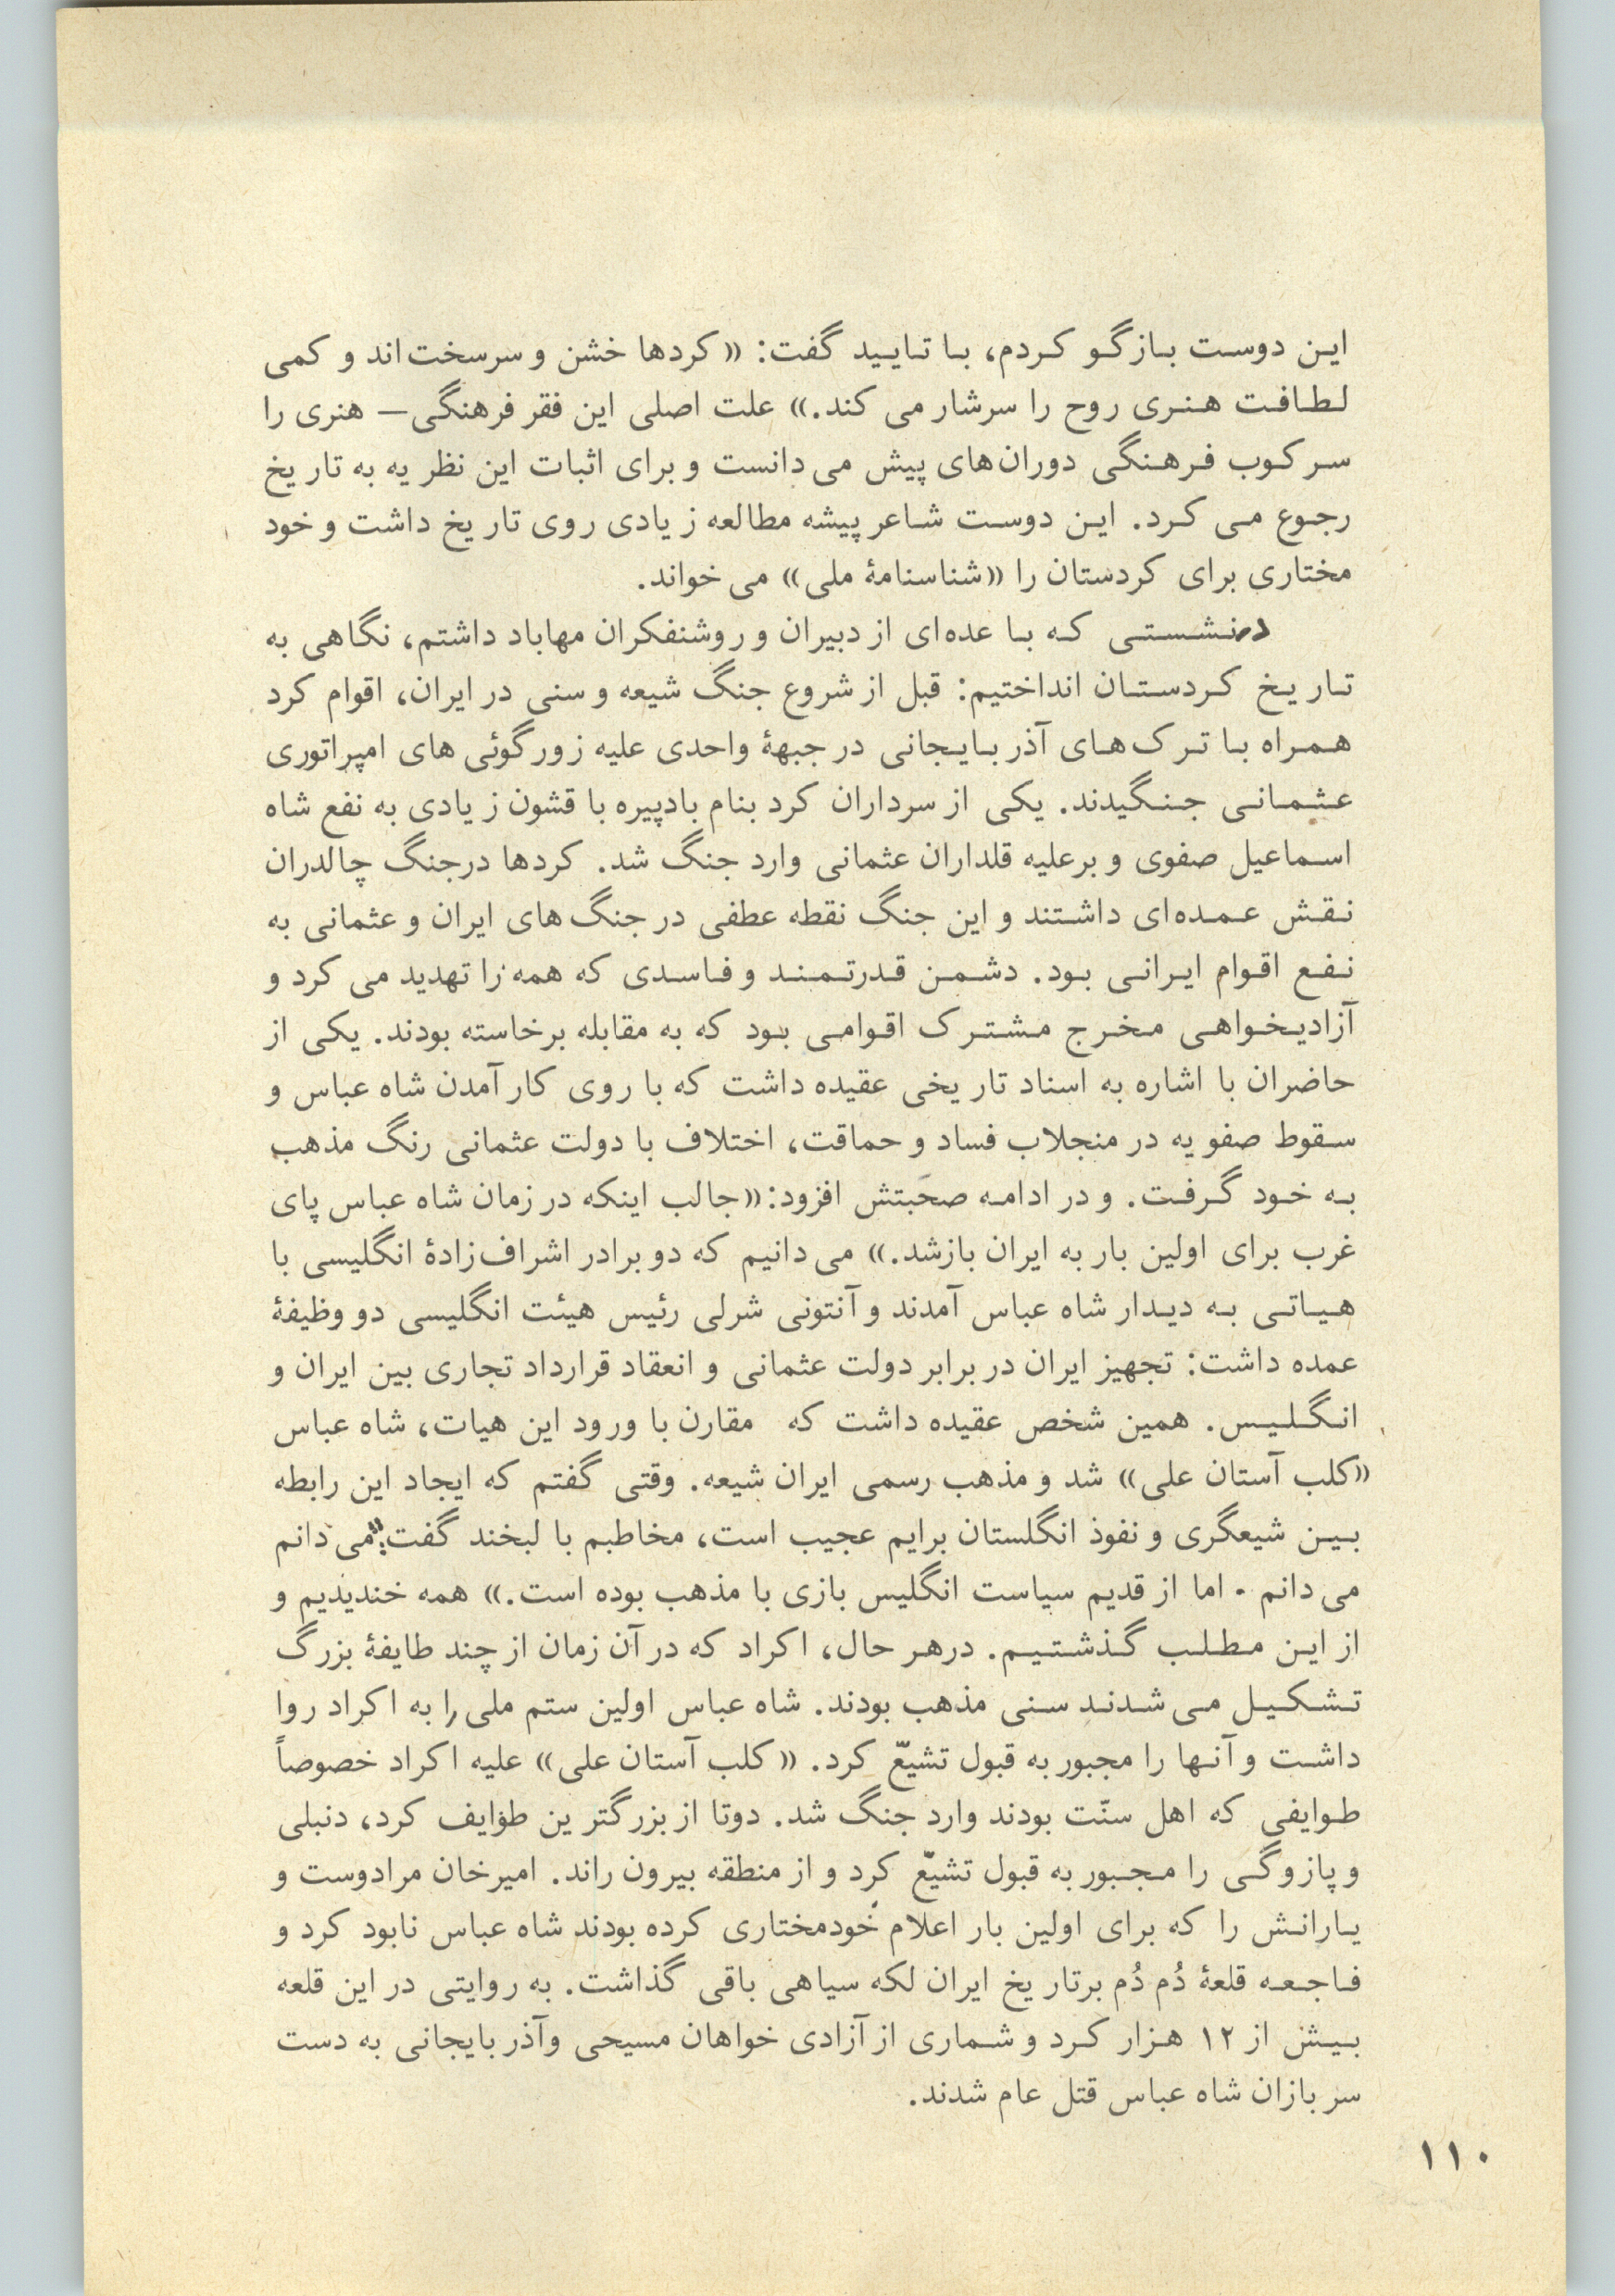 این دوست بازگو کردم، با تایید گفت: «کردها خشن و سرسخت‌اند و کمی
لطافت هنری روح را سرشار می کند.» علت اصلی این فقر فرهنگی— هنری را
سرکوب فرهنگی دوران‌های پیش می دانست و برای اثبات این نظریه به تاریخ
رجوع می کرد. این دوست شاعر پیشه مطالعه زیادی روی تاریخ داشت و خود
مختاری برای کردستان را «شناسنامهٔ ملی» می خواند.
درنشستی که با عده‌ای از دبیران و روشنفکران مهاباد داشتم، نگاهی به
تاریخ کردستان انداختیم: قبل از شروع جنگ شیعه و سنی در ایران، اقوام کرد
همراه با ترک‌های آذربایجانی در جبههٔ واحدی علیه زورگوئی های امپراتوری
عثمانی جنگیدند. یکی از سرداران کرد بنام بادپیره با قشون زیادی به نفع شاه
اسماعیل صفوی و برعلیه قلداران عثمانی وارد جنگ شد. کردها درجنگ چالدران
نقش عمده‌ای داشتند و این جنگ نقطه عطفی در جنگ‌های ایران و عثمانی به
نفع اقوام ایرانی بود. دشمن قدرتمند و فاسدی که همه را تهدید می کرد و
آزادیخواهی مخرج مشترک اقوامی بود که به مقابله برخاسته بودند. یکی از
حاضران با اشاره به اسناد تاریخی عقیده داشت که با روی کار آمدن شاه عباس و
سقوط صفویه در منجلاب فساد و حماقت، اختلاف با دولت عثمانی رنگ مذهب
به خود گرفت. و در ادامه صحبتش افزود:«جالب اینکه در زمان شاه عباس پای
غرب برای اولین بار به ایران بازشد.» می دانیم که دو برادر اشراف‌زادهٔ انگلیسی با
هیاتی به دیدار شاه عباس آمدند و آنتونی شرلی رئیس هیئت انگلیسی دو وظیفهٔ
عمده داشت: تجهیز ایران در برابر دولت عثمانی و انعقاد قرارداد تجاری بین ایران و
انگلیس. همین شخص عقیده داشت که مقارن با ورود این هیات، شاه عباس
«کلب آستان علی» شد و مذهب رسمی ایران شیعه. وقتی گفتم که ایجاد این رابطه
بین شیعگری و نفوذ انگلستان برایم عجیب است، مخاطبم با لبخند گفت:"می دانم
می دانم ٠ اما از قدیم سیاست انگلیس بازی با مذهب بوده است.» همه خندیدیم و
از این مطلب گذشتیم. درهر حال، اکراد که در آن زمان از چند طایفهٔ بزرگ
تشکیل می شدند سنی مذهب بودند. شاه عباس اولین ستم ملی را به اکراد روا
داشت و آنها را مجبور به قبول تشیّع کرد. «کلب آستان علی» علیه اکراد خصوصاً
طوایفی که اهل سنّت بودند وارد جنگ شد. دوتا از بزرگترین طوایف کرد، دنبلی
و پازوگی را مجبور به قبول تشیّع کرد و از منطقه بیرون راند. امیرخان مرادوست و
یارانش را که برای اولین بار اعلام خودمختاری کرده بودند شاه عباس نابود کرد و
فاجعه قلعهٔ دُم دُم برتاریخ ایران لکه سیاهی باقی گذاشت. به روایتی در این قلعه
بیش از ۱۲ هزار کرد و شماری از آزادی خواهان مسیحی وآذربایجانی به دست
سربازان شاه عباس قتل عام شدند.
۱۱۰